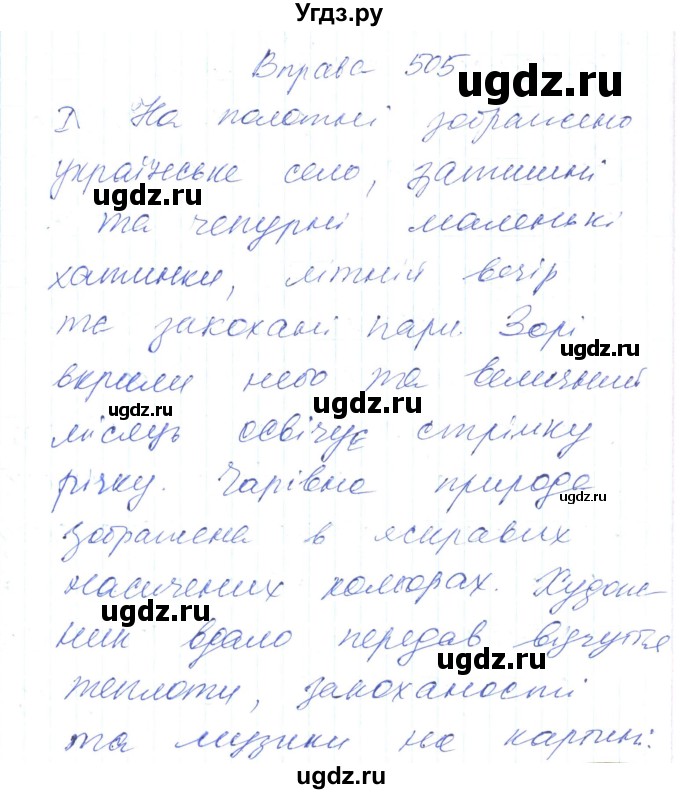 Угдз.ру
Вправа 505
ugdz.ru
І. На полотні зображено
українське село, затишні
ugdz.ru
ugdz.ru
та чепурні маленькі
хатинки, літній вечір
та закохані пари. Зорі
ugdz.ru
вкрили небо та величний
ugdz.ru
ugdz.ru
місяць освічує стрімку
річку. Чарівна природа
ugdz.ru
зображена в яскравих
насичених кольорах. Худож-
ugdz.ru
ник вдало передав відчуття
ugdz.ru
теплоти, закоханості
та музики на картині.
ugdz.ru